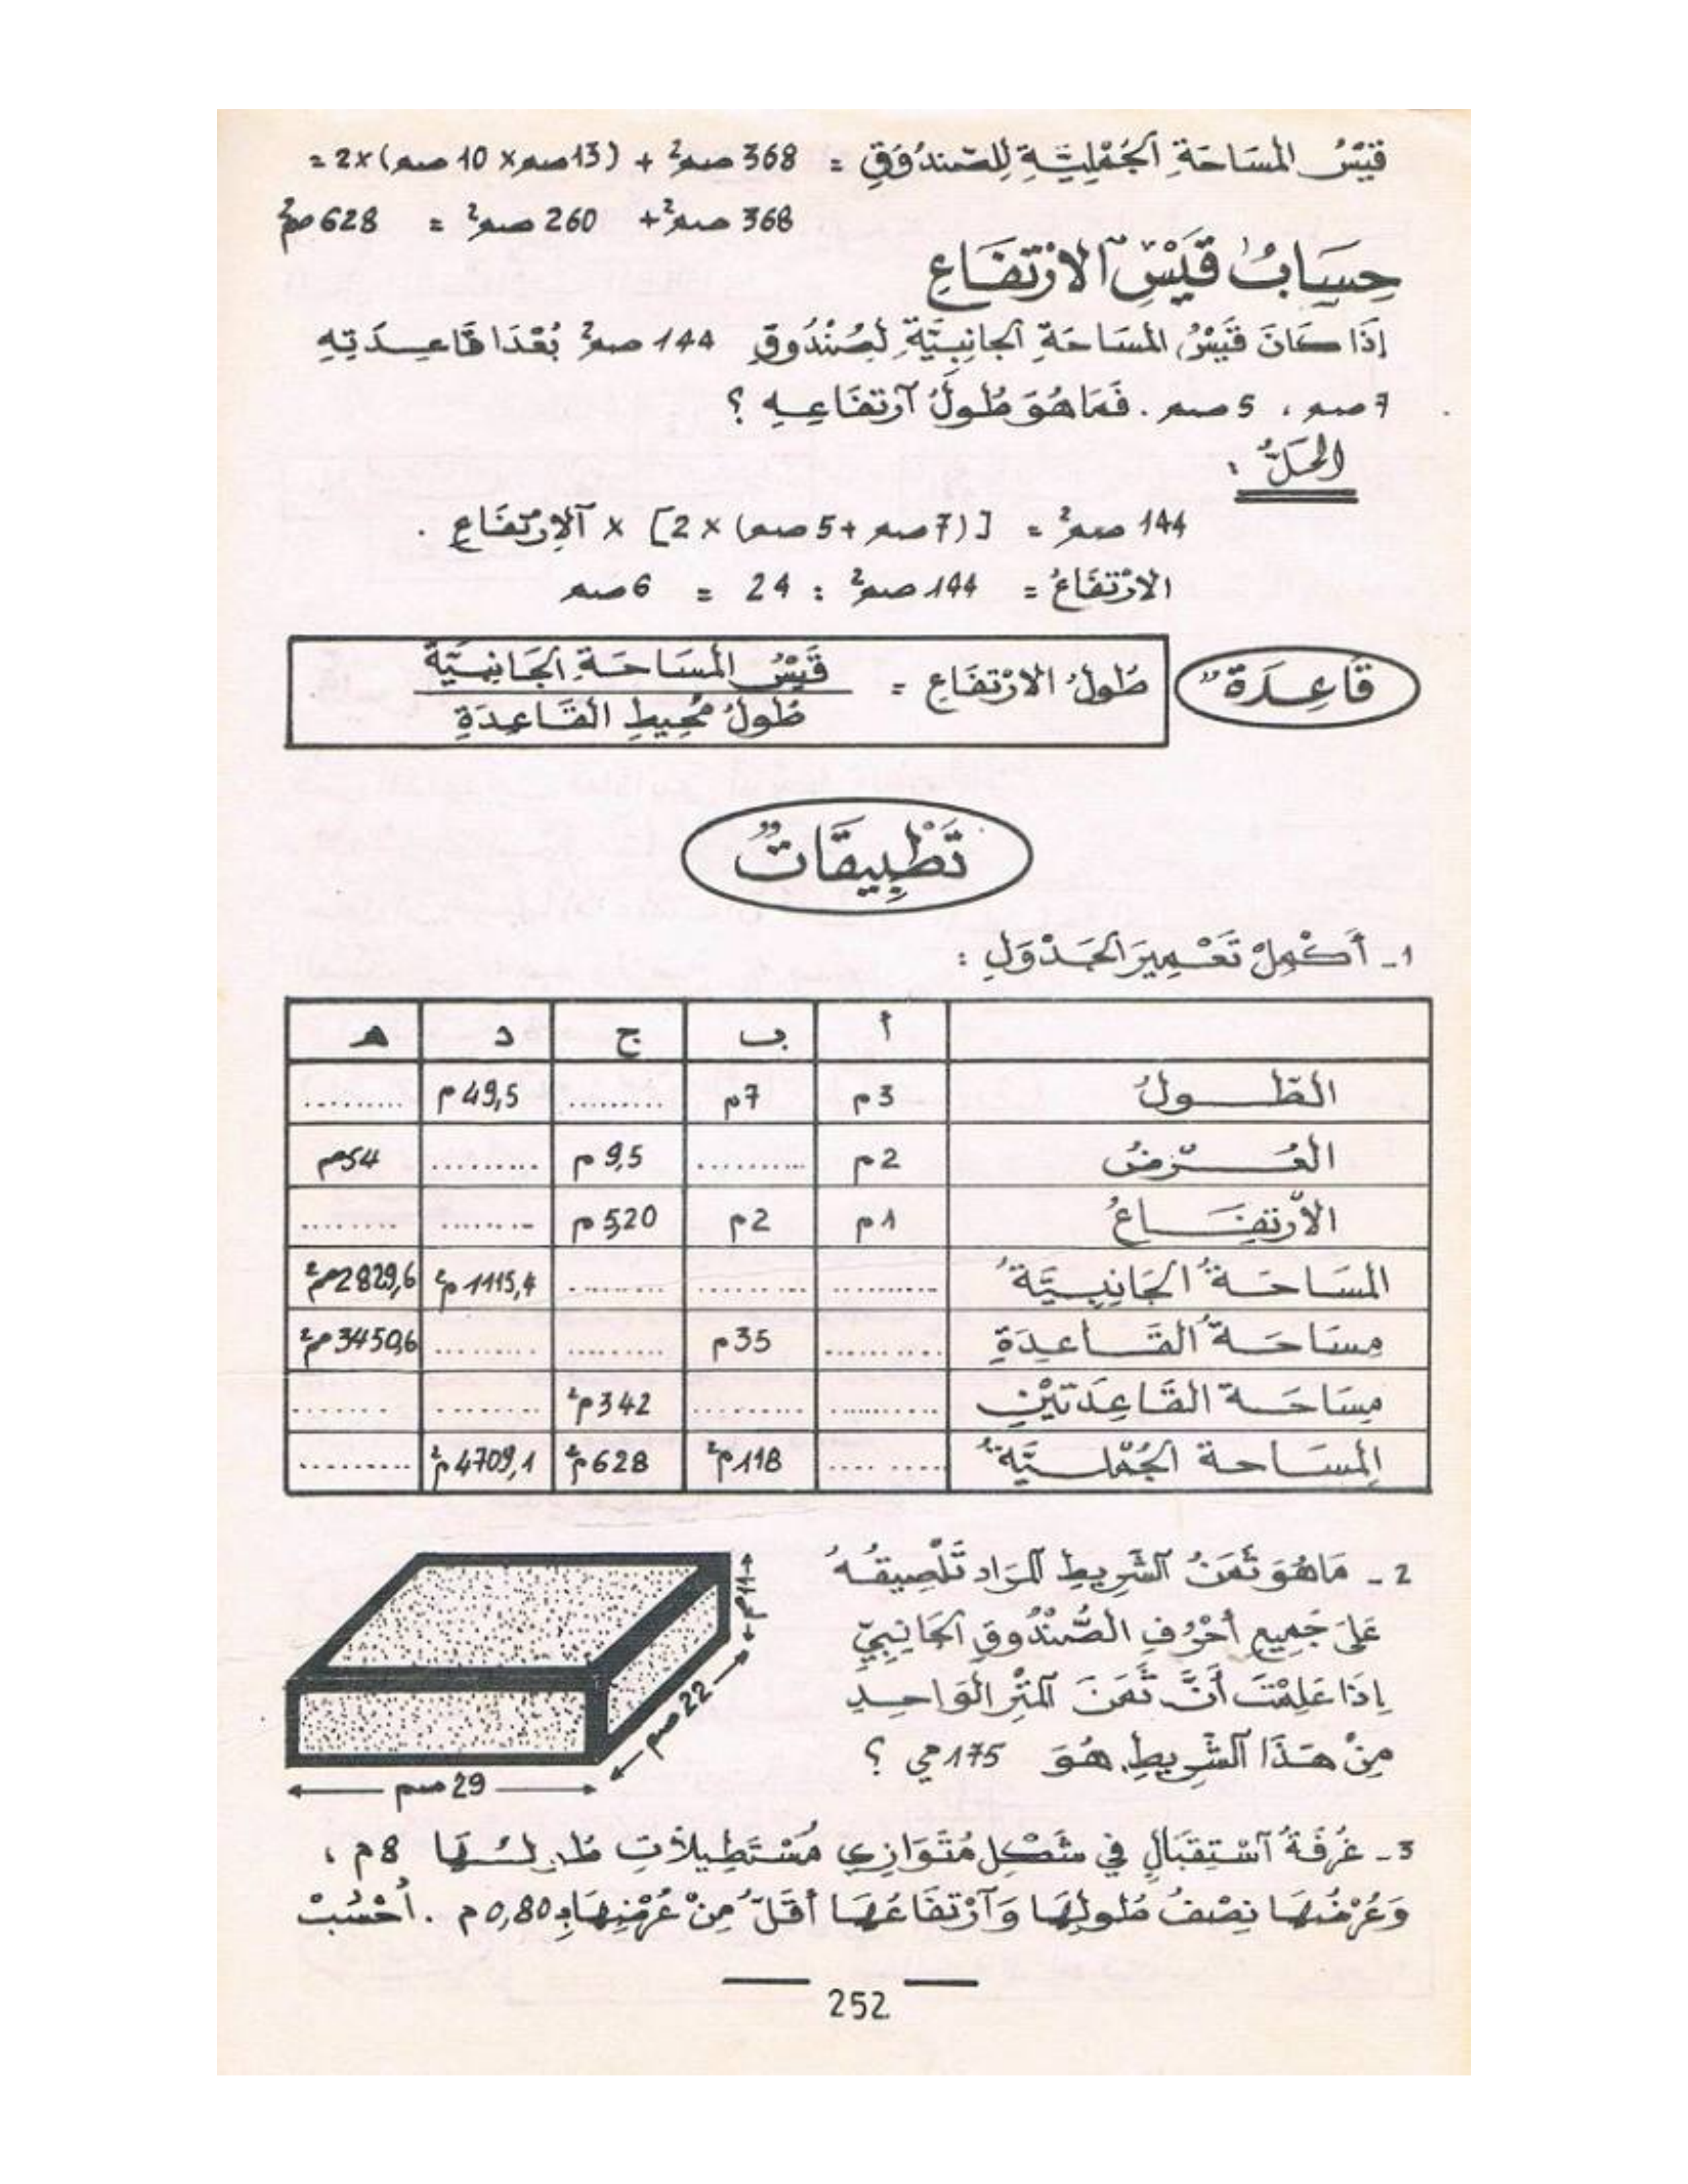 قَيْسُ المسَاحَةِ الجُمْلِيَّةِ لِلصّندُوقِ = 368 صم² + (13صم x 10 صم) x2 =
368 صم² + 260 صم² = 628 صم²
حِسَابُ قَيْسِ الارْتفَاعِ
إذَا كَانَ قَيْسُ المسَاحَةِ الجانِبِيَّةِ لِصُنْدُوقٍ 144 صم² بُعْدَا قَاعِدَتِهِ
7صم ، 5 صم . فَمَا هُوَ طُولُ آرتفَاعِهِ ؟
الحَلُّ :
144 صم² = [(7صم + 5صم) x 2] x آلارتفَاعِ .
الارْتفَاعُ = 144 صم² : 24 = 6صم
قَاعِدَةٌ
طُولُ الارْتفَاعِ = قَيْسُ المسَاحَةِ الجَانِبِيَّةِ
طُولُ مُحِيطِ القَاعِدَةِ
تَطْبِيقَاتٌ
1- أَكْمِلْ تَعْمِيرَ الجَدْوَلِ :
أ ب ج د ه
الطّولُ 3م 7م ......... 49,5م .........
العُرْضُ 2م .......... 9,5م ......... 54م
الاْرتفَاعُ 1م 2م 5,20م ........ ........
المسَاحَةُ الجَانِبِيَّةُ .......... ......... ......... 1115,4م² 2829,6م²
مِسَاحَةُ القَاعِدَةِ .......... 35م ......... ......... 3450,6م²
مِسَاحَة القَاعِدَتيْنِ .......... .......... 342م² ........ .......
المسَاحة الجُمْلِيَّةُ ........ 118م² 628م² 4709,1م² .........
2- مَا هُوَ ثَمَنُ آلشَّرِيطِ آلمرَاد تَلْصِيقُهُ
عَلَى جَمِيعِ أحْرُفِ الصُّنْدُوقِ الجَانِبِيِّ
إذَا عَلِمْتَ أَنَّ ثَمَنَ آلمتْرِ الوَاحِدِ
مِنْ هَذَا آلشَّرِيطِ هُوَ 175 مي ؟
11صم
22 صم
29 صم
3- غُرفَةُ آسْتِقبَالٍ في شَكْلِ مُتَوَازِي مُسْتَطِيلاَتٍ طُولُهَا 8م ،
وَعُرْضُهَا نِصْفُ طُولِهَا وَآرْتفَاعُهَا أقَلُّ مِنْ عُرْضِهَا بِـ 0,80م . اُحْسُبْ
252